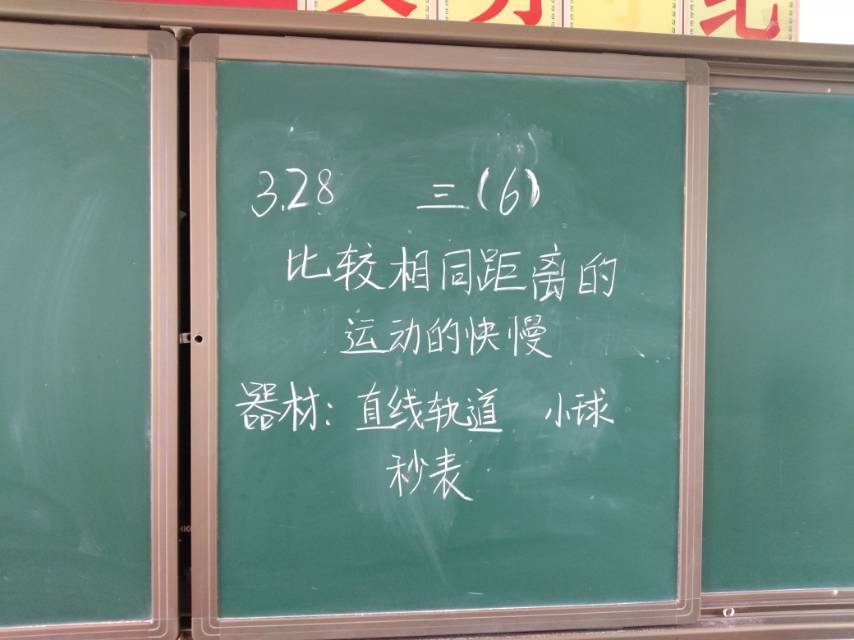 3.28 三(6)
比较相同距离的
运动的快慢
器材：直线轨道 小球
秒表